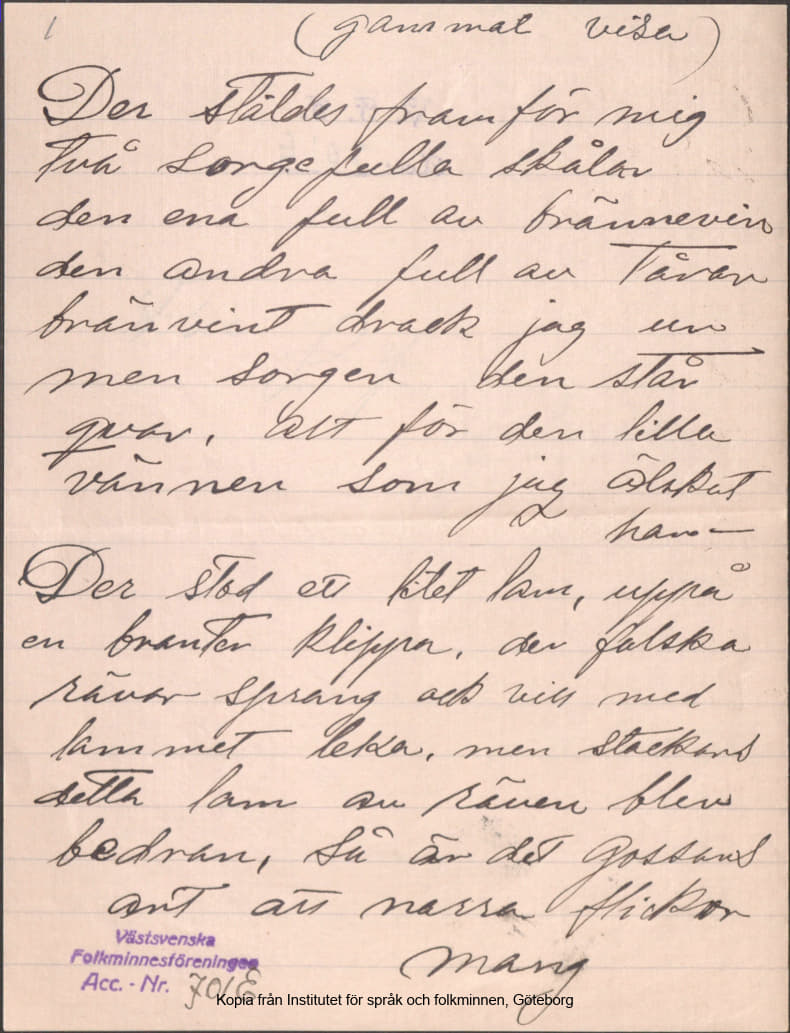 1 (gammal visa)
Der stäldes fram för mig
två sorgefulla skålar
den ena full av bränneven
den andra full av Tårar
bränvint drack jag ur
men sorgen den står
qvar, allt för den lilla
vännen som jag älskat
har—
Der stod ett litet lam, uppå
en branter klippa, der falska
rävar sprang ock vill med
lammet leka, men stackars
detta lam av räven blev
bedran, så är det gossars
art att narra flickor
mang
Västsvenska
Folkminnesföreningen
Acc. - Nr. 701E
Kopia från Institutet för språk och folkminnen, Göteborg